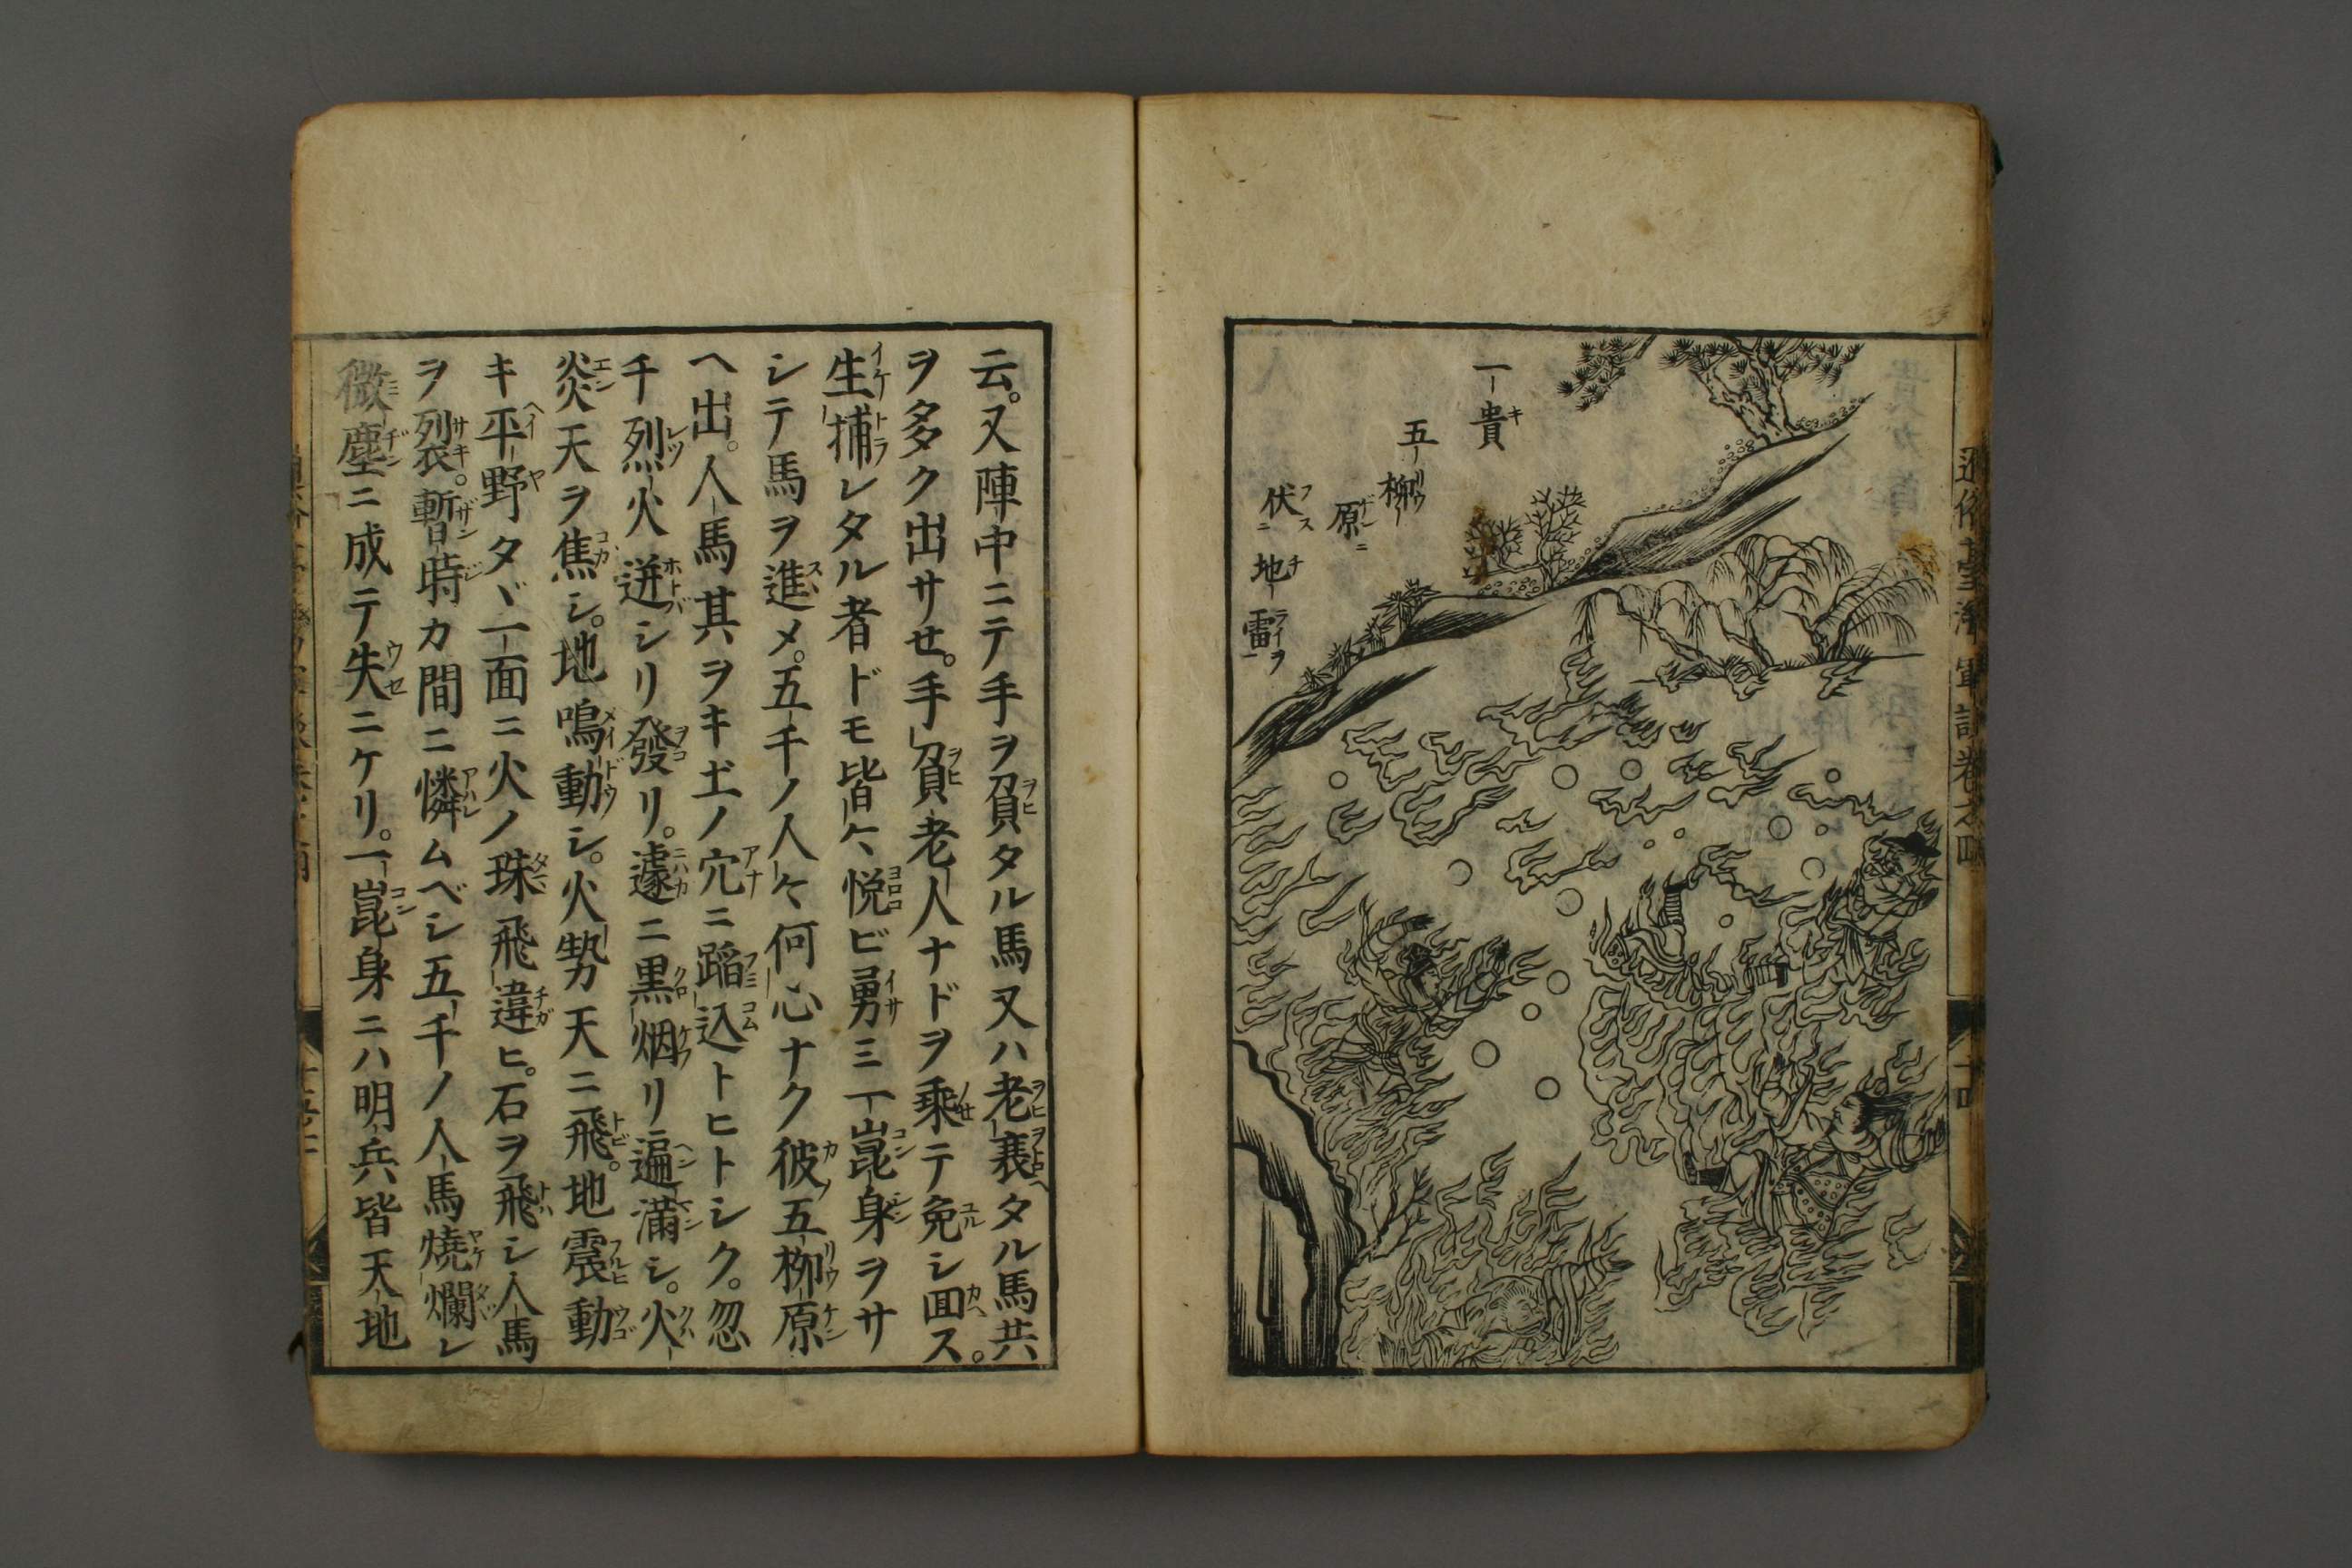 通俗臺灣軍談卷之四
十四
一貴
五柳
原ニ
伏ニ
地
雷ヲ
云。又陣中ニテ手ヲ負タル馬又ハ老衰タル馬共
ヲ多ク出サせ。手負老人ナドヲ乗テ免シ囬ス。
生捕レタル者ドモ皆々悦ビ勇ミ一崑身ヲサ
シテ馬ヲ進メ。五千ノ人々何心ナク彼五柳原
ヘ出。人馬其ヲキ土ノ穴ニ蹈込トヒトシク。忽
チ烈火迸シリ發リ。遽ニ黒烟リ遍滿シ。火
炎天ヲ焦シ。地鳴動シ。火勢天ニ飛。地震動
キ平野タヾ一面ニ火ノ珠飛違ヒ。石ヲ飛シ人馬
ヲ裂。暫時カ間ニ憐ムベシ五千ノ人馬燒爛レ
微塵ニ成テ失ニケリ。一崑身ニハ明兵皆天地